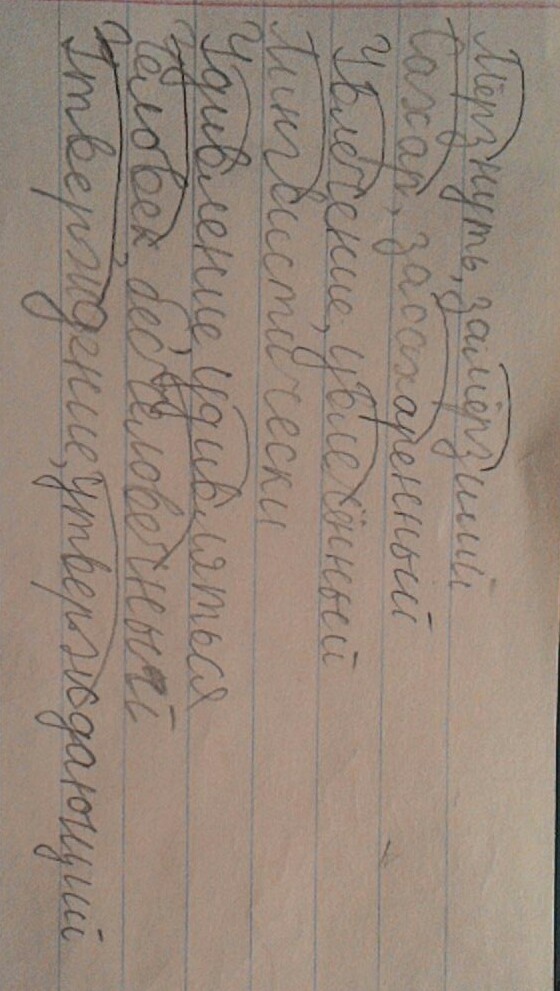 Мёрзнуть, замёрзший
Сахар, засахаренный
Увлечение, увлечённый
Лингвистически
Удивление, удивляться
Человек, бесчеловечный
Утверждение, утверждающий